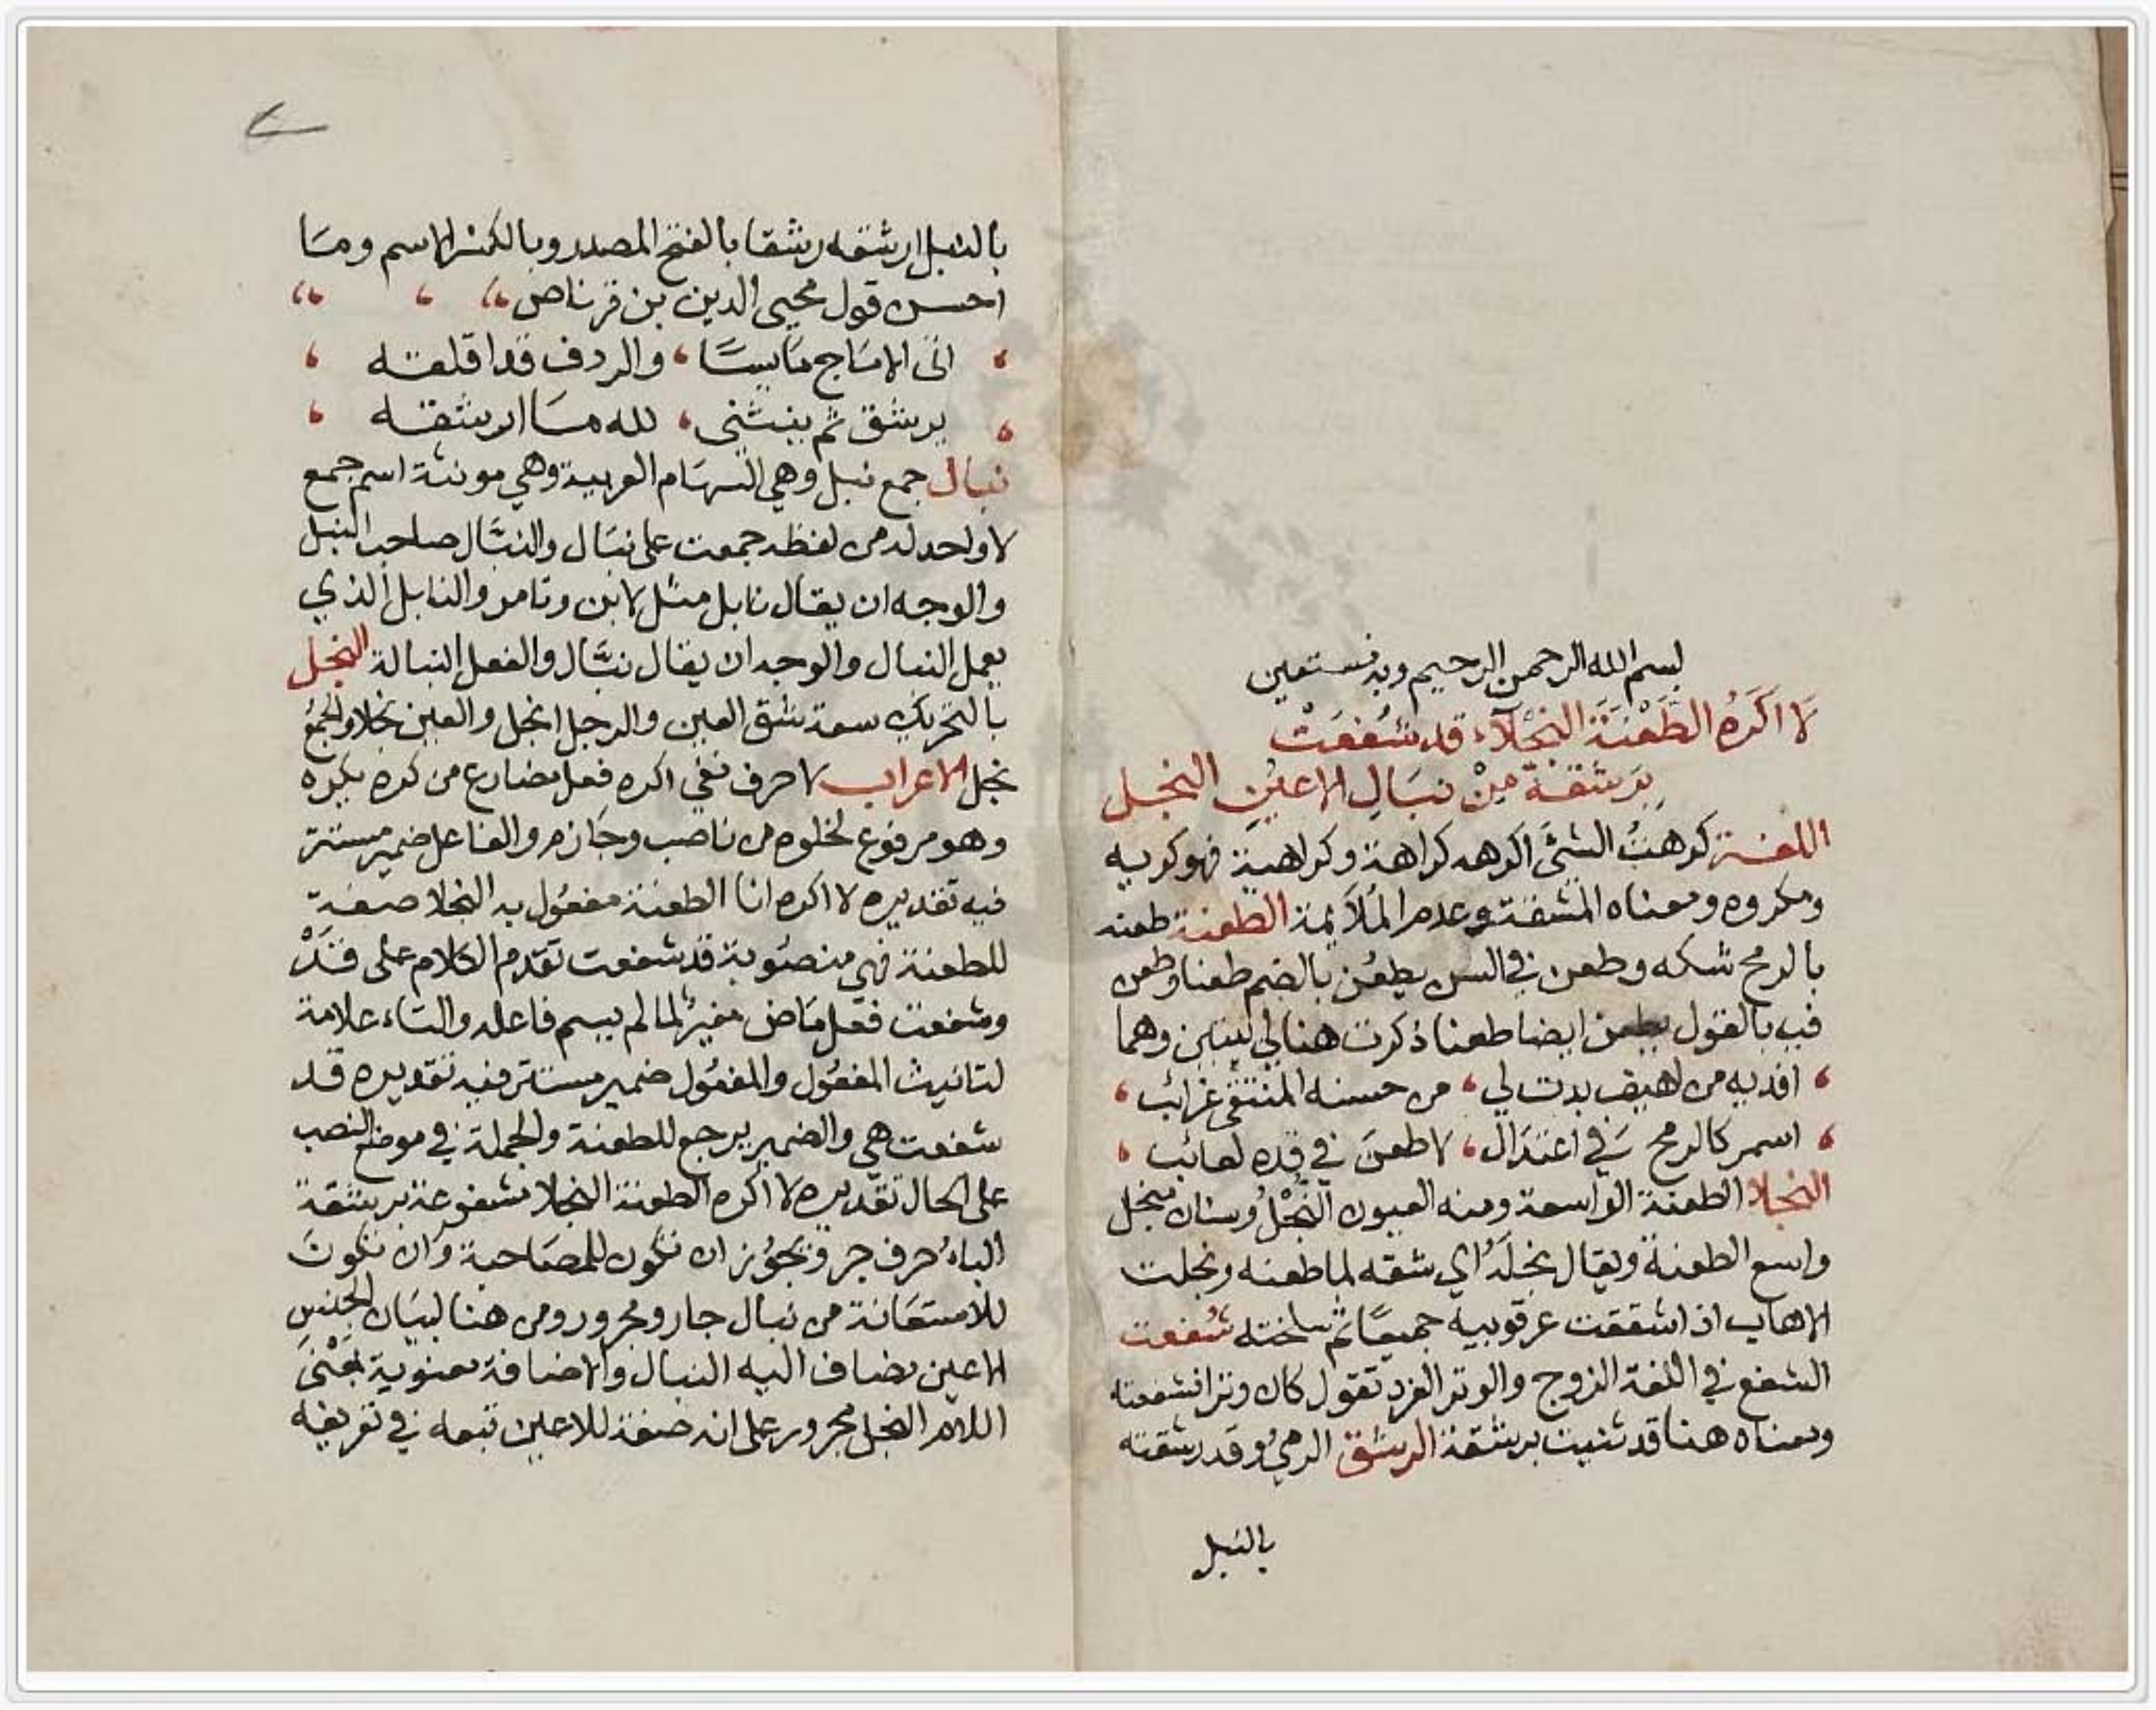 بسم الله الرحمن الرحيم وبه نستعين
لَا اَكْرَهُ الطَّعْنَةَ النَّجْلَاءَ قد شُفِعَتْ
بِرَشْقَةٍ مِنْ نِبَالِ الاعيُنِ النجل
اللغة كرهتُ الشئَ اكرهه كراهة وكراهية فهو كريه
ومكروه ومعناه المشقة وعدم المُلَايمة الطعنة طعنه
بالرمح شكه وطعن في السن يطعُن بالضم طعنا وطعن
فيه بالقول يطعن ايضا طعنا ذكرت هنا لي بيتين وهما
افديه من اهيف بدت لي ، من حسنه المنتقى غرائب ،
اسمر كالرمح في اعتدال ، لا طعن في قده لعائب ،
النجلا الطعنة الواسعة ومنه العيون النُّجْلُ وسنان منجل
واسع الطعنة ويقال نجلَهُ اي شقه لما طعنه ونجلت
الاهاب اذا شققت عرقوبيه جميعًا ثم سلخته شُفعت
الشفع في اللغة الزوج والوتر الفرد تقول كان وترا فشفعته
ومعناه هنا قد ثنيت برشقة الرشق الرميُ وقد رشقته
بالنبل
بالنبل ارشقه رشقا بالفتح المصدر وبالكسر الاسم وما
احسن قول محيى الدين بن قرناص
، اتى الامساج مايسًا ، والردف قد اقلقه ،
، يرشق ثم ينثني ، لله ما ارشقه ،
نبال جمع نبل وهي السهام العربية وهي مونثة اسم جمع
لا واحد له من لفظه جمعت على نبال والنبَّال صاحب النبل
والوجه ان يقال نابل مثل لابن وتامر والنابل الذي
يعمل النبال والوجه ان يقال نبَّال والفعل النبالة النجل
بالتحريك سعة شق العين والرجل انجل والعين نجلا والجمع
نجل الاعراب لا حرف نفي اكره فعل مضارع من كره يكره
وهو مرفوع لخلوه من ناصب وجازم والفاعل ضمير مستتر
فيه تقديره لا اكره انا الطعنة مفعُول به النجلا صفة
للطعنة فهي منصُوبة قد شفعت تقدم الكلام على قَدْ
وشفعت فعل مَاض مغيرٌ لما لم يسم فاعله والتاء علامة
لتانيث المفعُول والمفعُول ضمير مستتر فيه تقديره قد
شفعت هي والضمير يرجع للطعنة والجملة في موضع النصب
على الحال تقديره لا اكره الطعنة النجلا مشفوعة برشقة
الباءُ حرف جر ويجُوز ان تكون للمصَاحبة وان تكونَ
للاستعَانة من نبال جار ومجرور ومن هنا لبيَان الجنس
الاعين مضاف اليه النبال والاضافة معنوية بمَعْنَى
اللام النجل مجرور على انه صفة للاعين تبعه في تعريفه